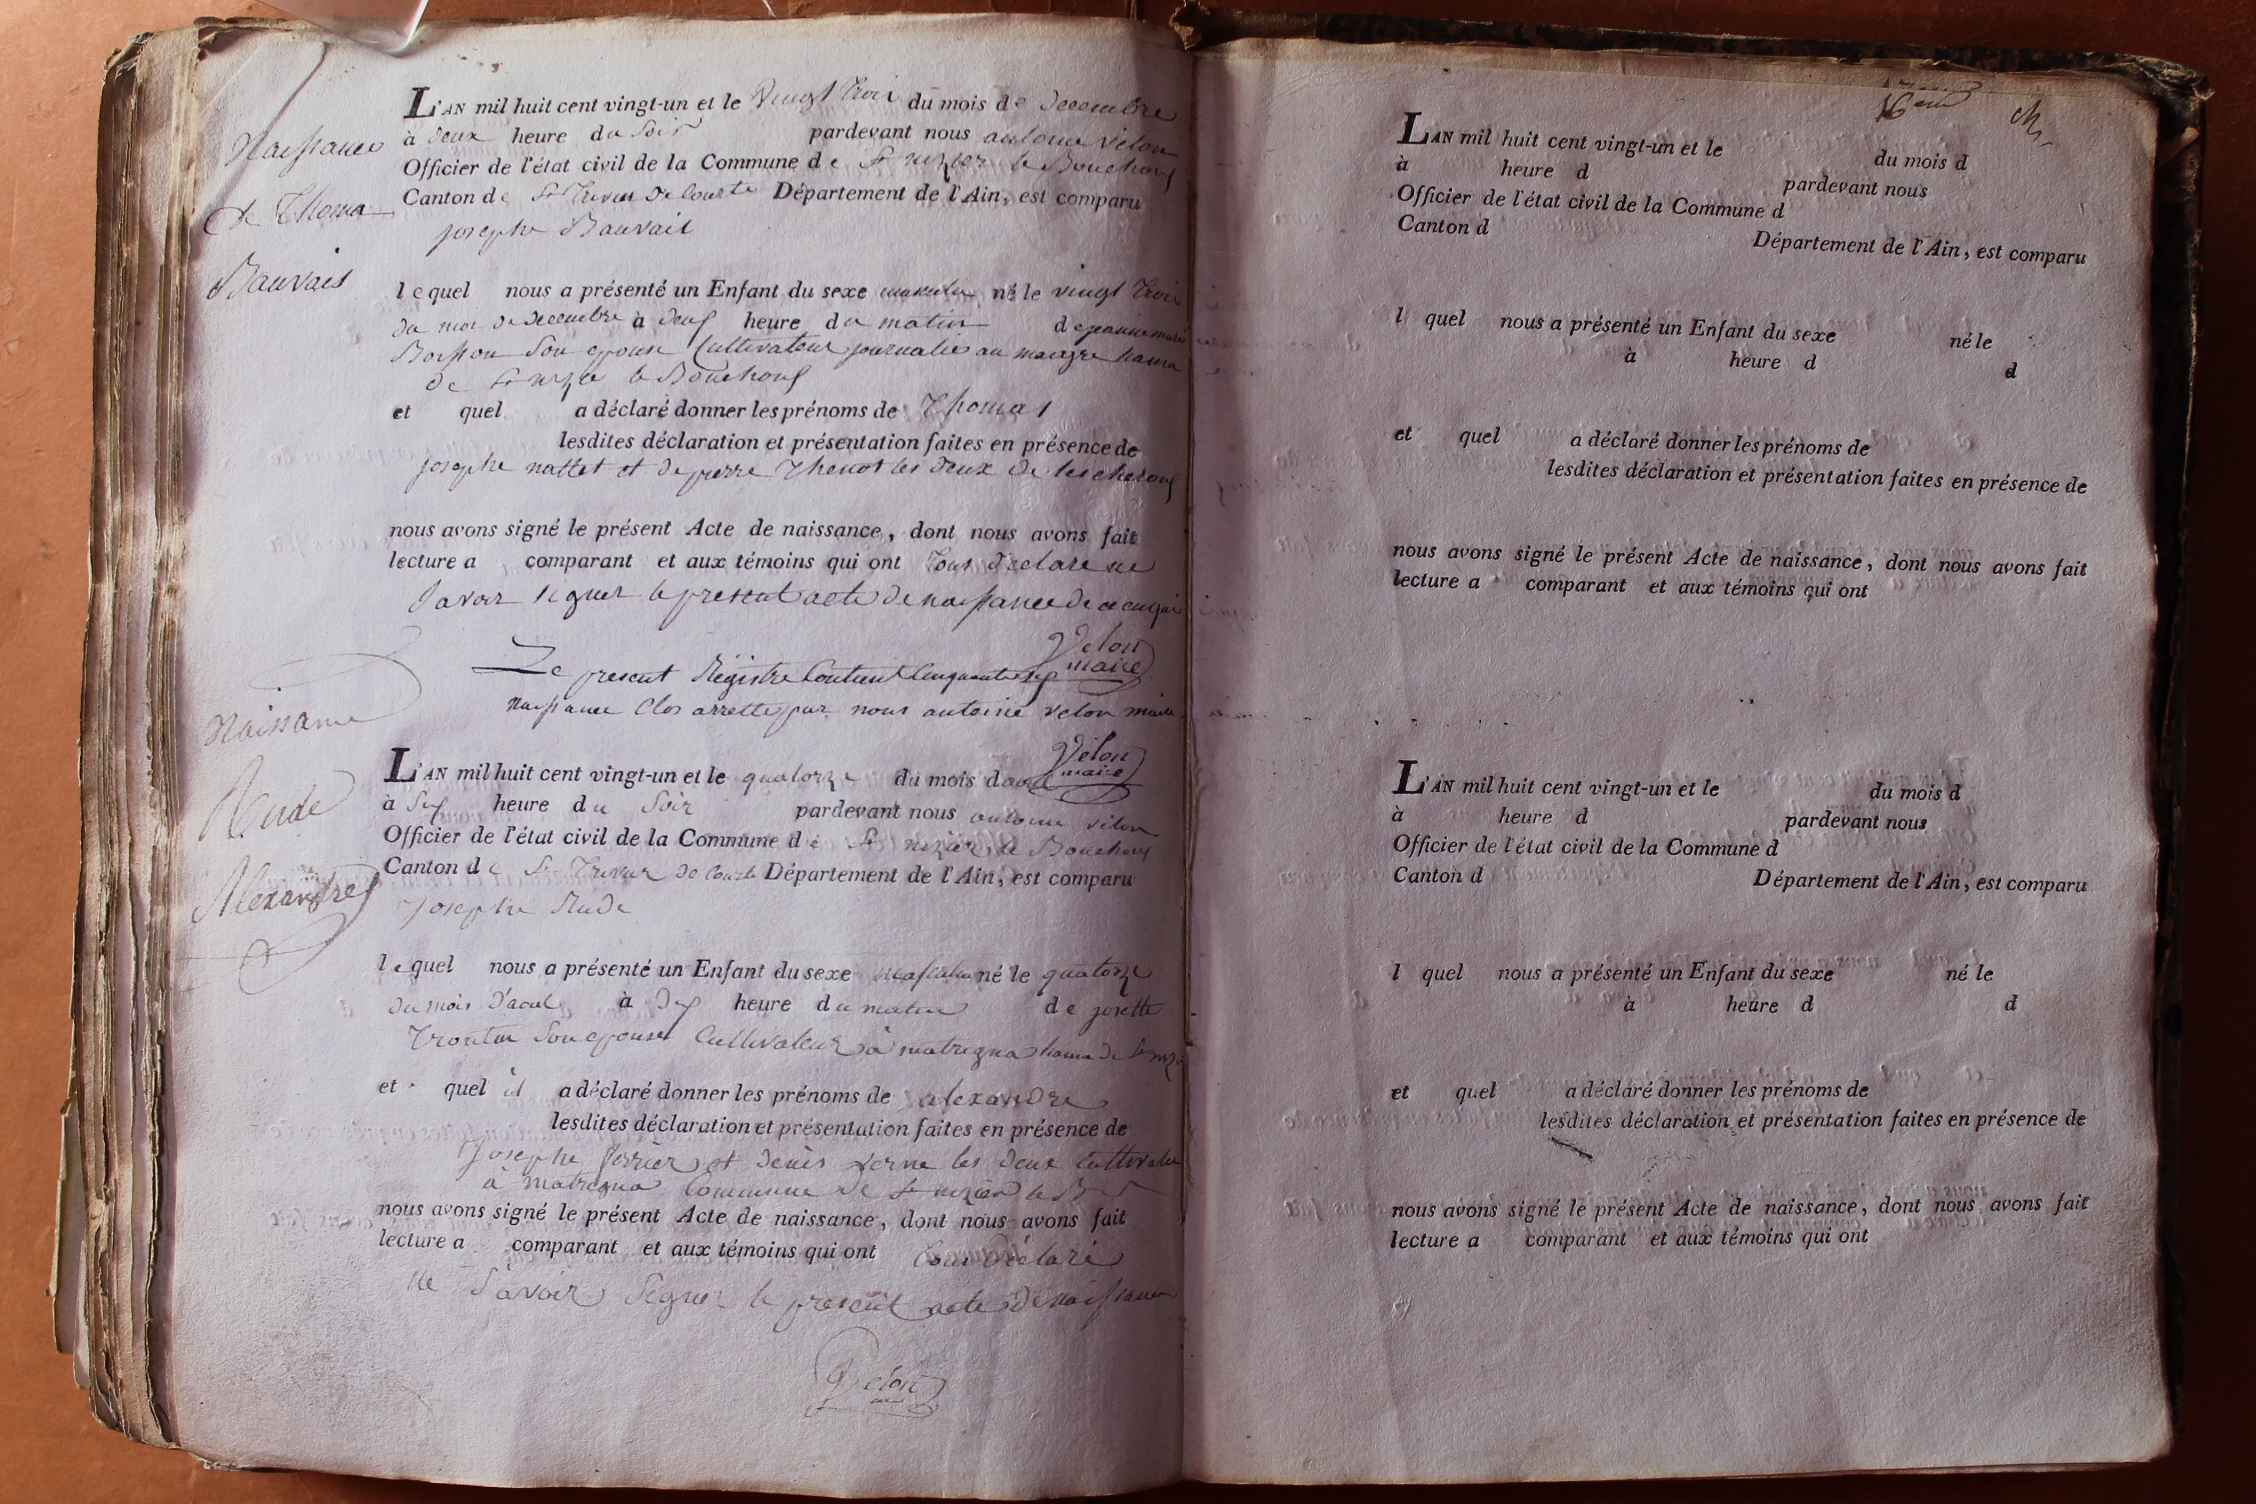 Naissance
de Thoma
Bauvais
L'AN mil huit cent vingt-un et le vingt trois du mois de decembre
à deux heure du soir pardevant nous antoine velon
Officier de l'état civil de la Commune de St nizier le Bouchoux
Canton de St Trivier de Courte Département de l'Ain, est comparu
josephe Bauvait
lequel nous a présenté un Enfant du sexe masculin né le vingt trois
du mois de decembre à deux heure du matin de jeanne marie
son epouse Cultivateur journalier au hamau
de St nizier le Bouchoux
et quel a déclaré donner les prénoms de Thomas
lesdites déclaration et présentation faites en présence de
josephe nattet et de pierre Thenot les deux de lescheroux
nous avons signé le présent Acte de naissance, dont nous avons fait
lecture a comparant et aux témoins qui ont tous declare ne
savoir signer le present acte de naissance de ce enquis
Velon
maire
Le present Régistre Contient Cinquante
naissance Clos arretté par nous antoine velon maire
Velon
maire
Naissance
Rude
Alexandre
L'AN mil huit cent vingt-un et le quatorze du mois d
à six heure du soir pardevant nous antoine velon
Officier de l'état civil de la Commune de St nizier le Bouchoux
Canton de St Trivier de Courte Département de l'Ain, est comparu
Josephe Rude
lequel nous a présenté un Enfant du sexe masculin né le quatorze
du mois d'aout à dix heure du matin de josette
son epouse Cultivateur à matregna hamau de St nizier
et quel il a déclaré donner les prénoms de alexandre
lesdites déclaration et présentation faites en présence de
Josephe ferrier et denis verne les deux Cultivateur
à matregna Commune de St nizier le B
nous avons signé le présent Acte de naissance, dont nous avons fait
lecture a comparant et aux témoins qui ont tous déclaré
ne savoir Signer le present acte de naissance
Velon
16eme
L'AN mil huit cent vingt-un et le du mois d
à heure d pardevant nous
Officier de l'état civil de la Commune d
Canton d Département de l'Ain, est comparu
l quel nous a présenté un Enfant du sexe né le
à heure d d
et quel a déclaré donner les prénoms de
lesdites déclaration et présentation faites en présence de
nous avons signé le présent Acte de naissance, dont nous avons fait
lecture a comparant et aux témoins qui ont
L'AN mil huit cent vingt-un et le du mois d
à heure d pardevant nous
Officier de l'état civil de la Commune d
Canton d Département de l'Ain, est comparu
l quel nous a présenté un Enfant du sexe né le
à heure d d
et quel a déclaré donner les prénoms de
lesdites déclaration et présentation faites en présence de
nous avons signé le présent Acte de naissance, dont nous avons fait
lecture a comparant et aux témoins qui ont